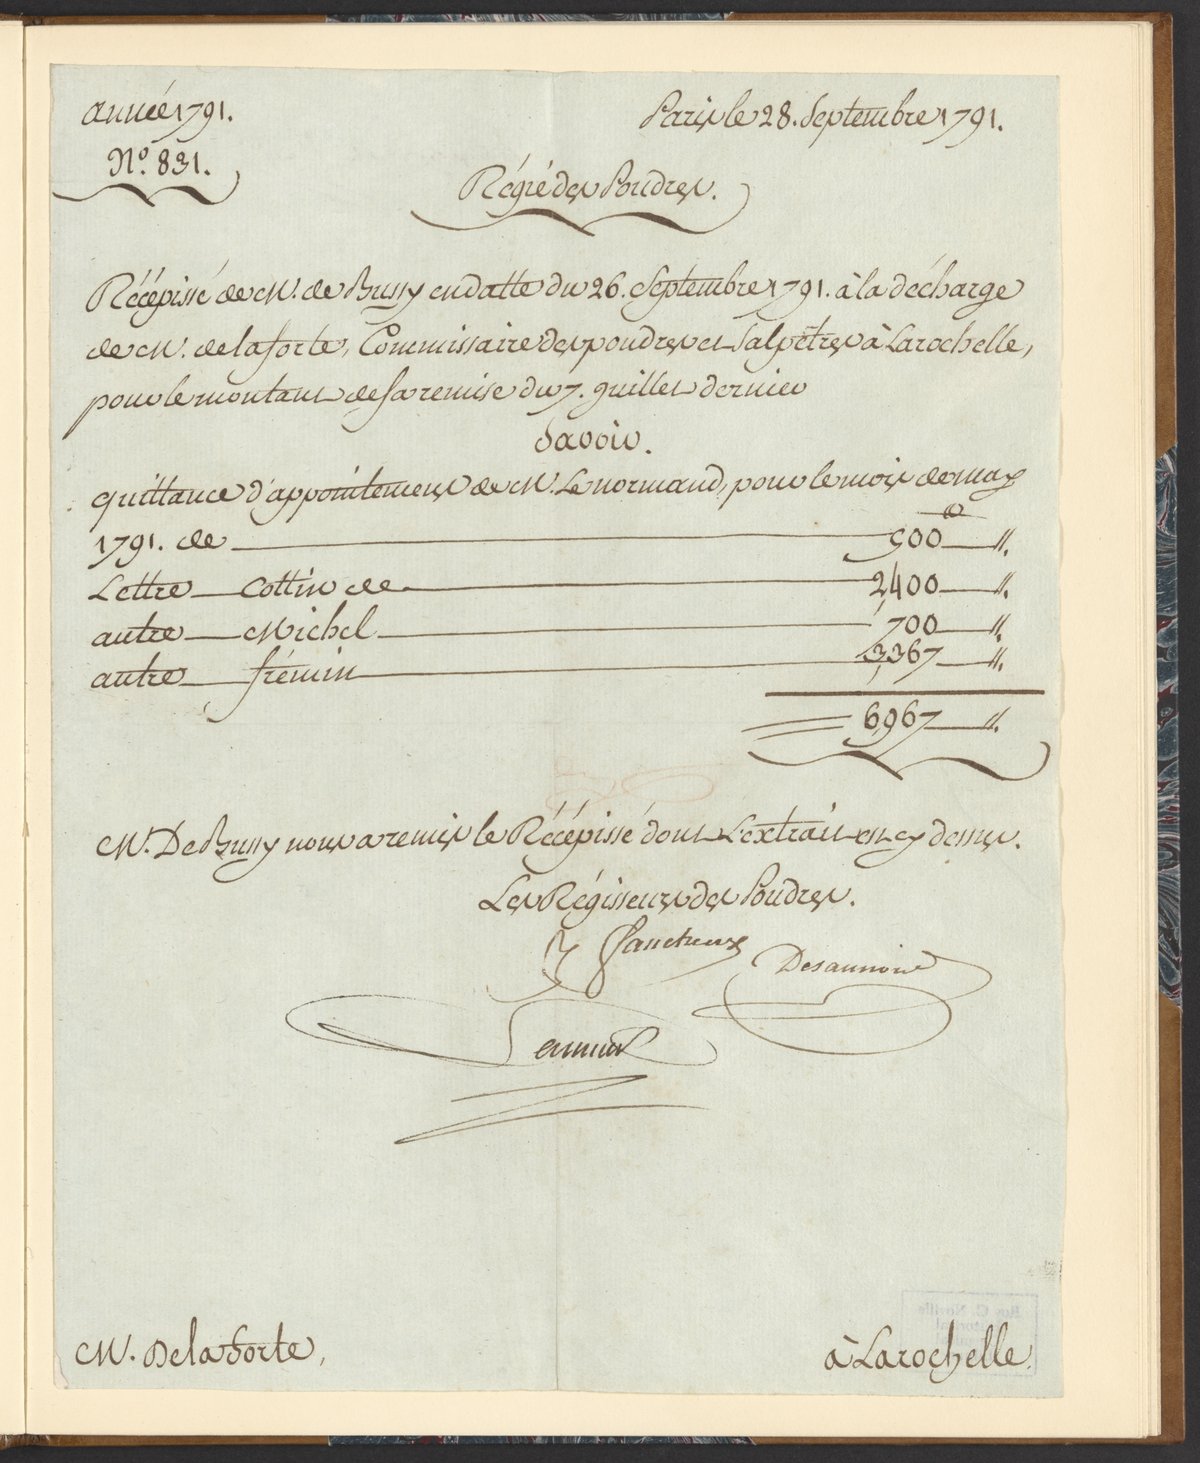 année 1791.
Paris le 28. Septembre 1791.
N.º 831.
Régie des Poudres.
Récépissé de M. de Bussy en datte du 26. Septembre 1791. à la décharge
de M. de laforte, Commissaire des poudres et Salpêtres à Larochelle,
pour le montant de sa remise du 7. juillet dernier
Savoir.
quittance d'appointement de M. Lenormand, pour le mois de may
1791. de 500 ₶ ".
Lettre Cottin de 2400 ".
autre Michel 700 ".
autre frémin 3,367 ".
6,967 ".
M. De Bussy nous a remis le Récépissé dont L'extrait est cy dessus.
Les Régisseurs des Poudres.
M. De laforte,
à Larochelle.